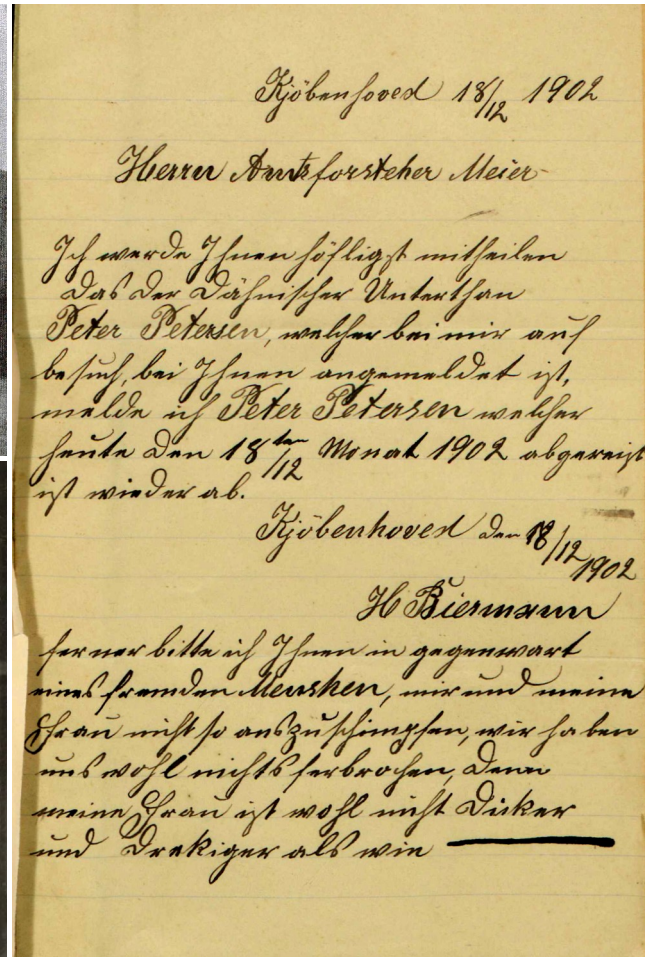 Kjöbenhoved 18/12 1902
Herrn Amtsforsteher Meier
Ich werde Ihnen höfligst mittheilen
das der Dähnischer Unterthan
Peter Petersen, welcher bei mir auf
besuch, bei Ihnen angemeldet ist,
melde ich Peter Petersen welcher
heute den 18ten/12 Monat 1902 abgereist
ist wieder ab.
Kjöbenhoved den 18/12
1902
H Biermann
ferner bitte ich Ihnen in gegenwart
eines fremden Menshen, mir und meine
Frau nicht so auszuschimpfen, wir haben
uns wohl nichts ferbrochen, denn
meine Frau ist wohl nicht Dicker
und Drekiger als wie